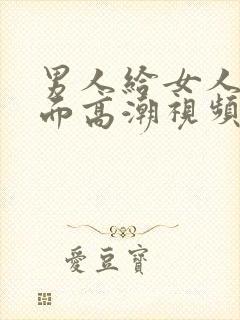 男人給女人
而高潮視頻
愛豆寶